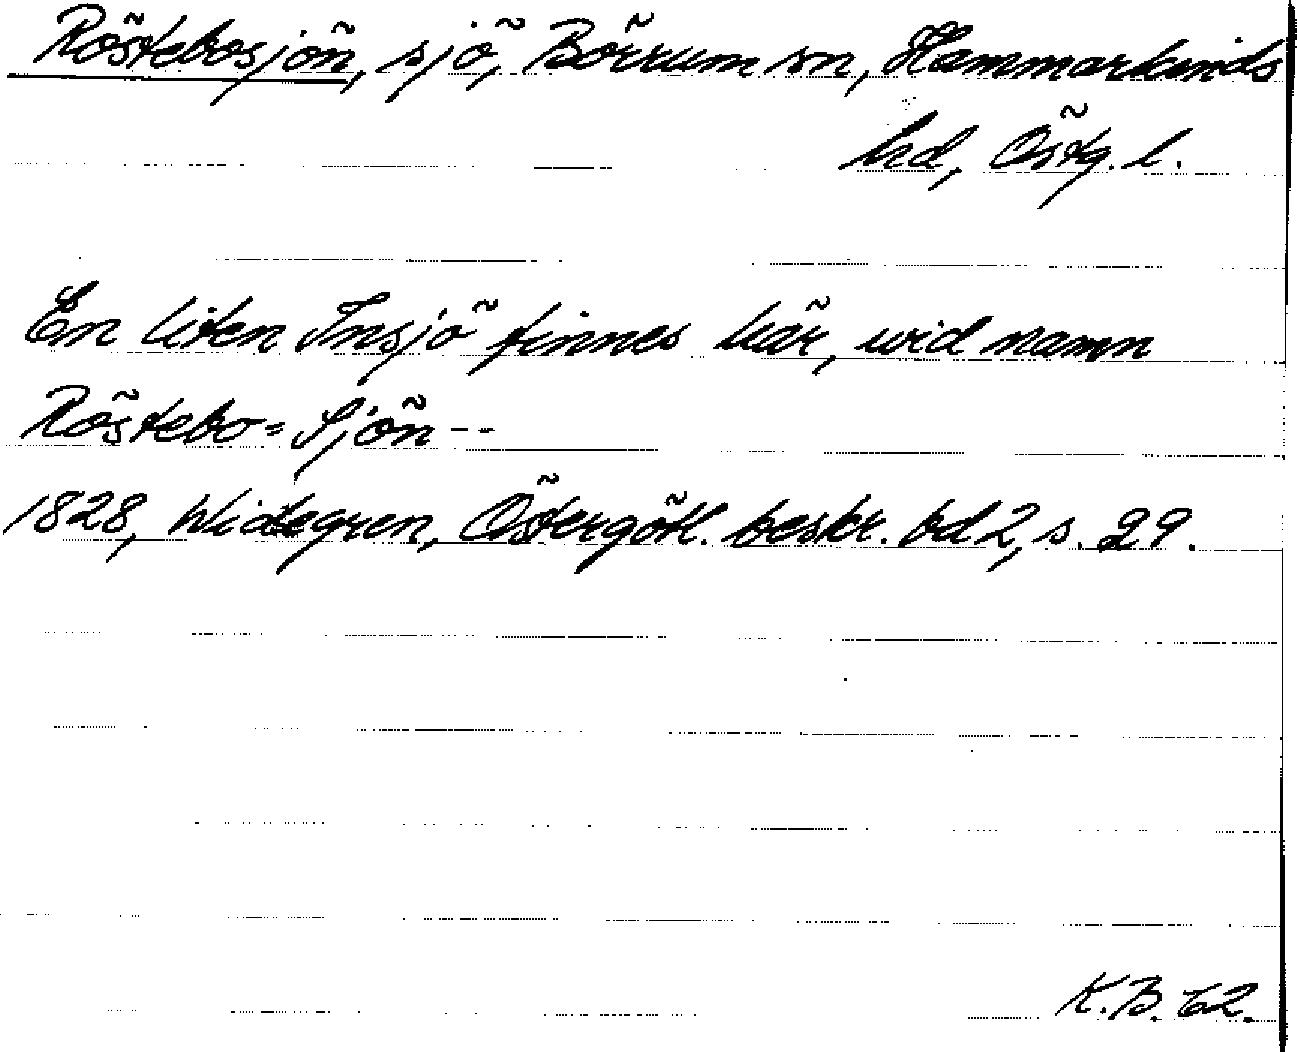 Röstebosjön, sjö, Börrum sn, Hammarkinds
hd, Östg. l.
En liten Insjö finnes här, wid namn
Röstebo=Sjön--
1828, Widegren, Östergötl. beskr. bd 2, s. 29.
K.B. 62.